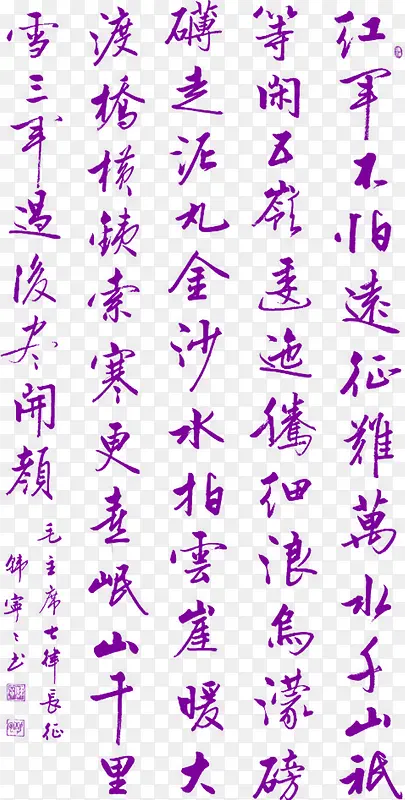 红军不怕遠征難萬水千山祇
等闲五嶺逶迤騰细浪烏濛磅
礴走泥丸金沙水拍雲崖暖大
渡橋横銕索寒更喜岷山千里
雪三军過後尽開顏
毛主席七律長征
韩寧〻书